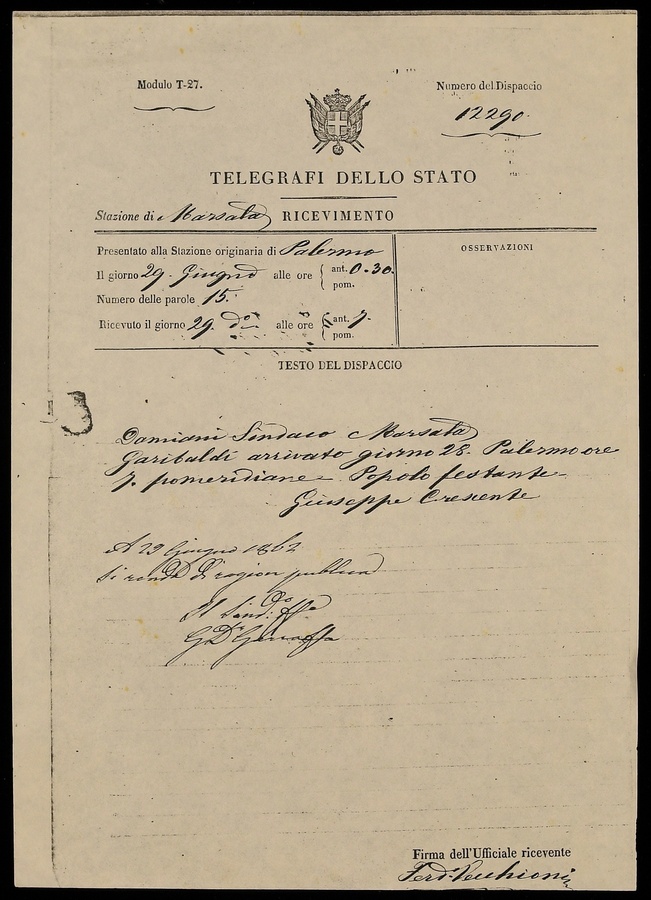 Modulo T-27.
Numero del Dispaccio
12290.
TELEGRAFI DELLO STATO
Stazione di Marsala RICEVIMENTO
Presentato alla Stazione originaria di Palermo
Il giorno 29. Giugno alle ore { ant. 0.30.
pom.
Numero delle parole 15.
Ricevuto il giorno 29. do alle ore { ant. 7.
pom.
OSSERVAZIONI
TESTO DEL DISPACCIO
Damiani Sindaco Marsala
Garibaldi arrivato giorno 28. Palermo ore
7. pomeridiane = Popolo festante =
Giuseppe Crescente
A 29 Giugno 1862
Si rende di ragion pubblica
Il
Firma dell'Ufficiale ricevente
Ferd. Vecchioni